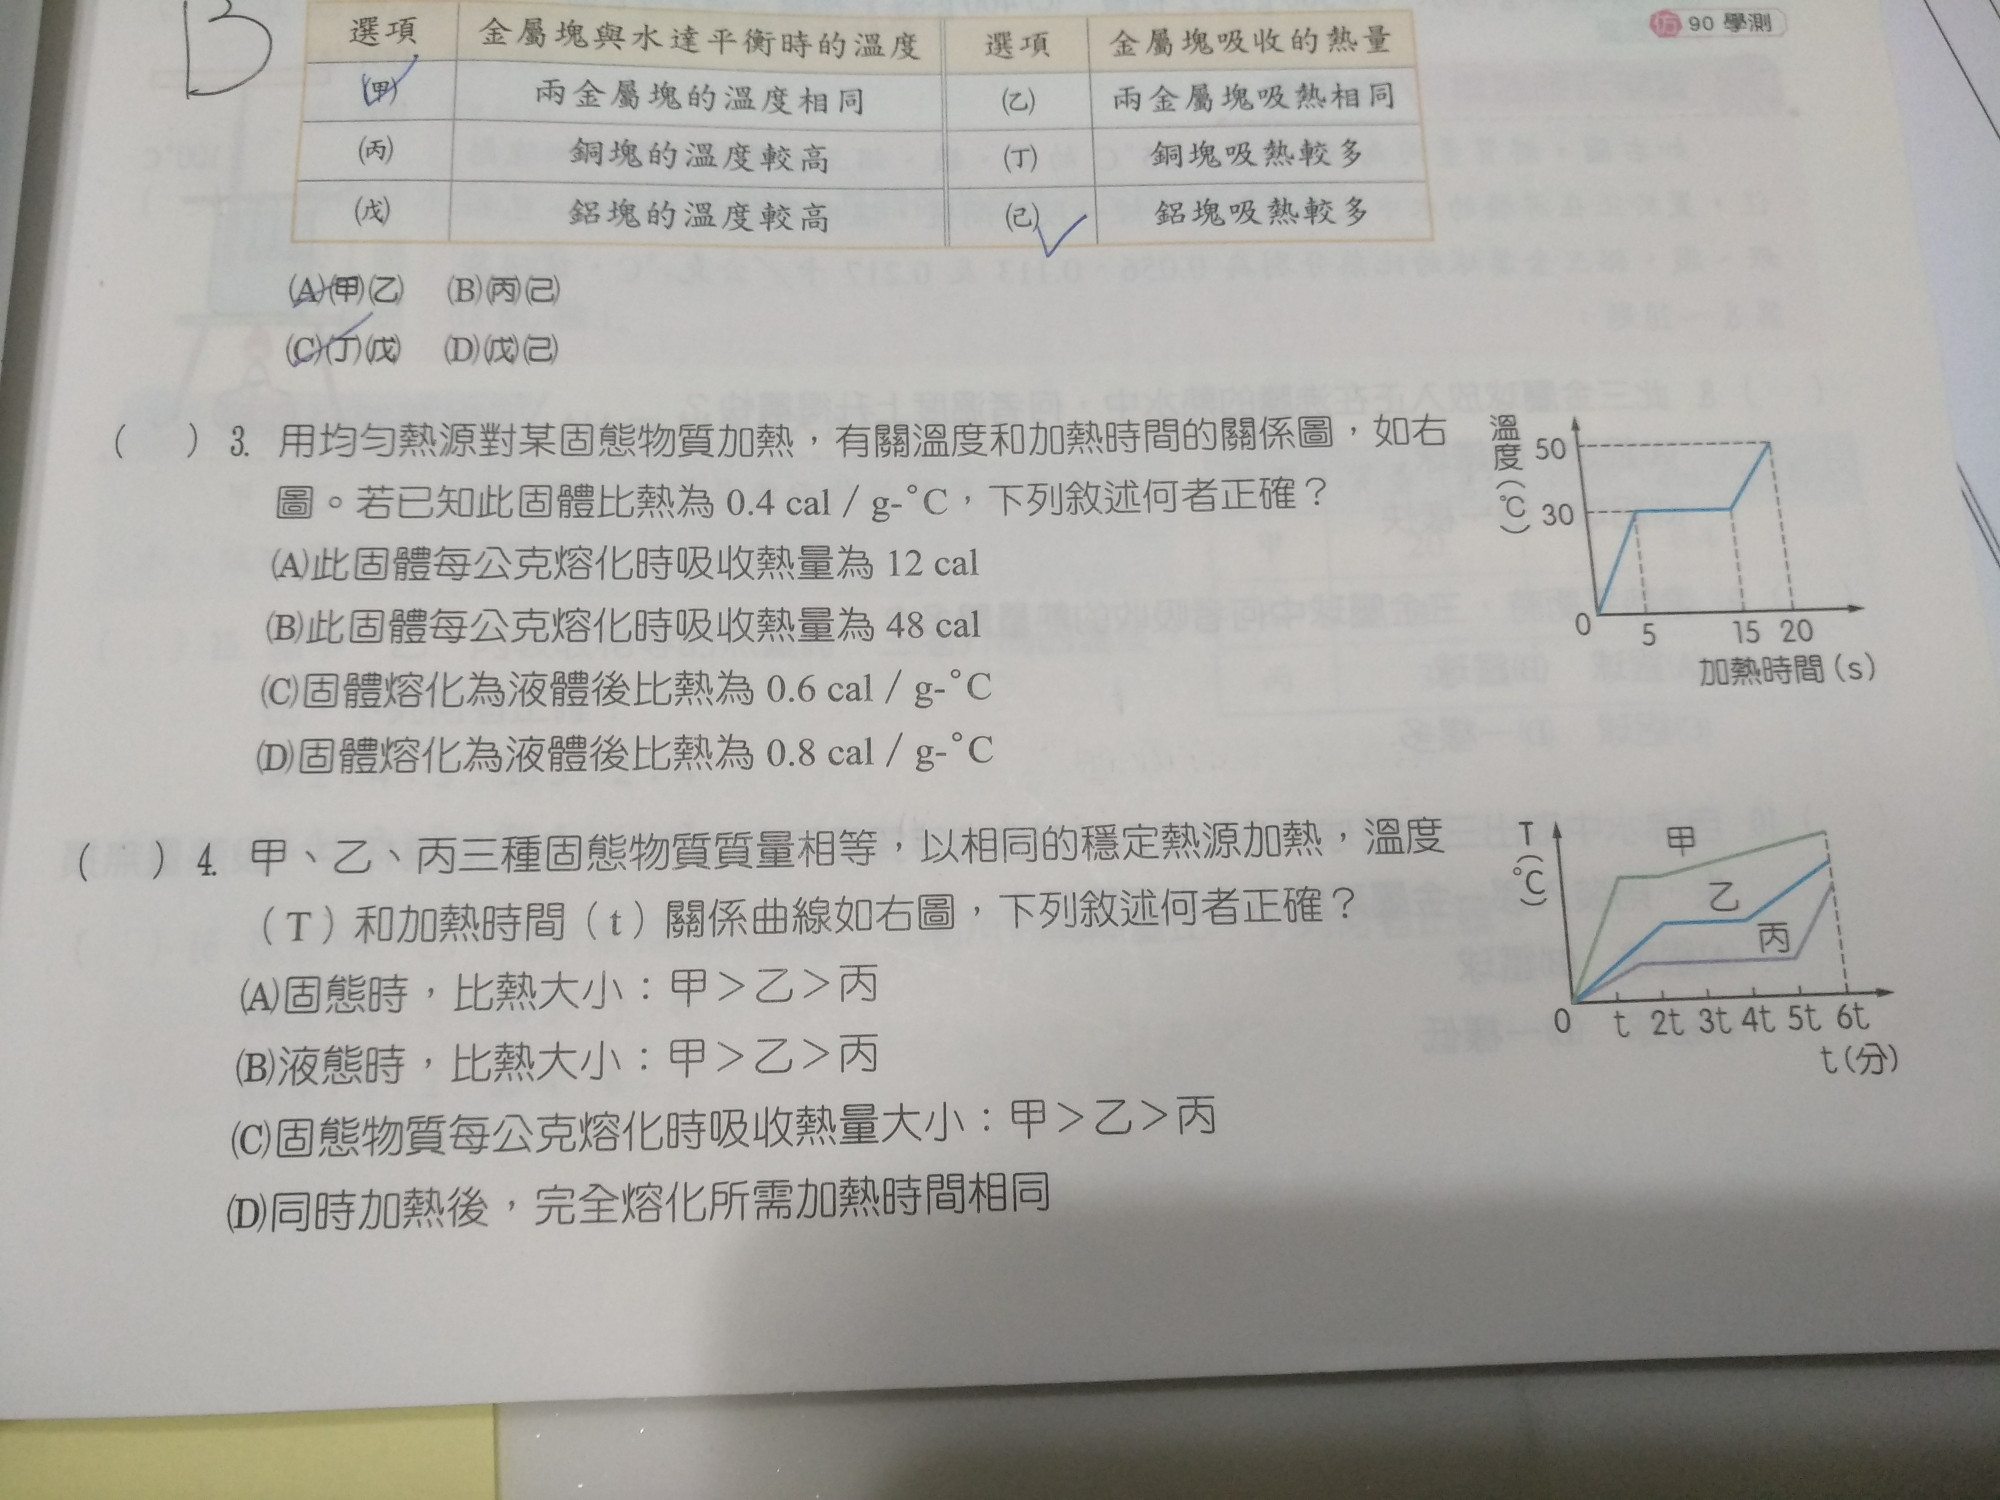 B
仿 90 學測
選項 金屬塊與水達平衡時的溫度 選項 金屬塊吸收的熱量
(甲) 兩金屬塊的溫度相同 (乙) 兩金屬塊吸熱相同
(丙) 銅塊的溫度較高 (丁) 銅塊吸熱較多
(戊) 鋁塊的溫度較高 (己) 鋁塊吸熱較多
(A)(甲)(乙) (B)(丙)(己)
(C)(丁)(戊) (D)(戊)(己)
( ) 3. 用均勻熱源對某固態物質加熱，有關溫度和加熱時間的關係圖，如右
圖。若已知此固體比熱為 0.4 cal / g-°C，下列敘述何者正確？
(A)此固體每公克熔化時吸收熱量為 12 cal
(B)此固體每公克熔化時吸收熱量為 48 cal
(C)固體熔化為液體後比熱為 0.6 cal / g-°C
(D)固體熔化為液體後比熱為 0.8 cal / g-°C
溫度(℃)
50
30
0 5 15 20
加熱時間(s)
( ) 4. 甲、乙、丙三種固態物質質量相等，以相同的穩定熱源加熱，溫度
（T）和加熱時間（t）關係曲線如右圖，下列敘述何者正確？
(A)固態時，比熱大小：甲＞乙＞丙
(B)液態時，比熱大小：甲＞乙＞丙
(C)固態物質每公克熔化時吸收熱量大小：甲＞乙＞丙
(D)同時加熱後，完全熔化所需加熱時間相同
T(℃)
甲
乙
丙
0 t 2t 3t 4t 5t 6t
t(分)